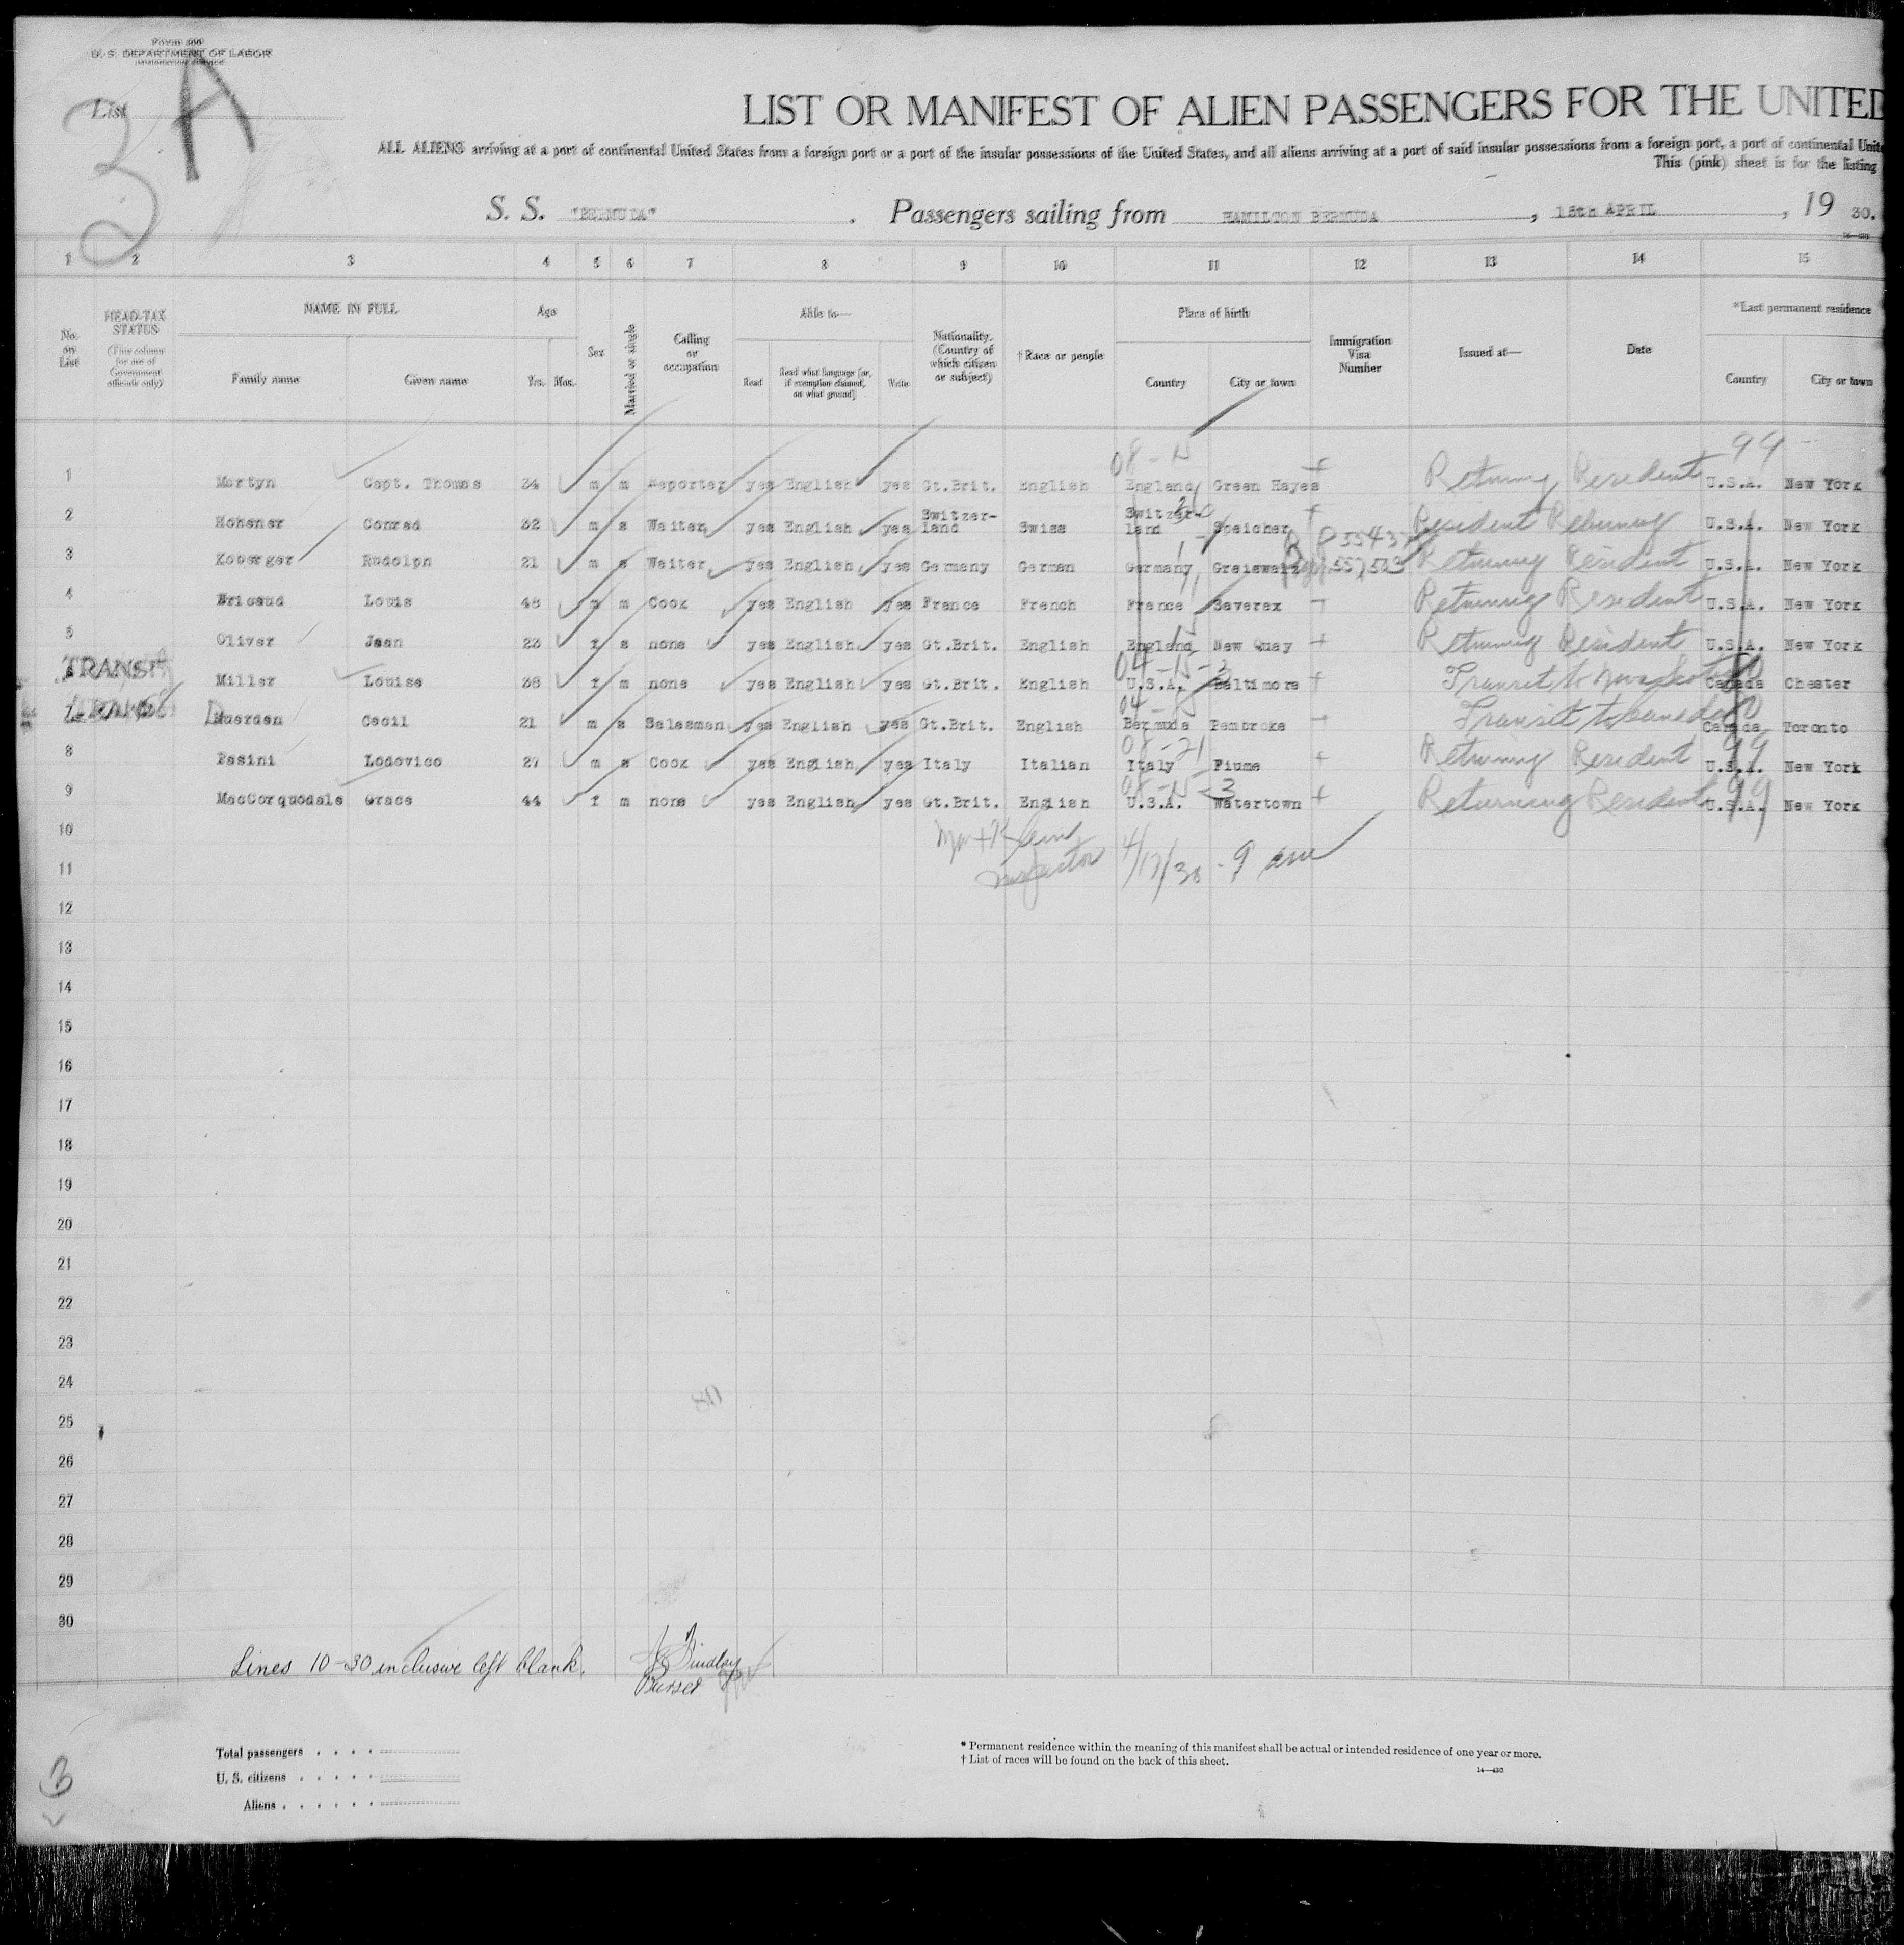 Form 500
U. S. DEPARTMENT OF LABOR
IMMIGRATION SERVICE
List
3 A
LIST OR MANIFEST OF ALIEN PASSENGERS FOR THE UNITED
ALL ALIENS arriving at a port of continental United States from a foreign port or a port of the insular possessions of the United States, and all aliens arriving at a port of said insular possessions from a foreign port, a port of continental Unite
This (pink) sheet is for the listing
S. S. "BERMUDA" . Passengers sailing from HAMILTON BERMUDA , 15th APRIL , 19 30.
1 2 3 4 5 6 7 8 9 10 11 12 13 14 15
No. on List
HEAD-TAX STATUS
(This column for use of Government officials only)
NAME IN FULL
Family name Given name
Age
Yrs. Mos.
Sex
Married or single
Calling or occupation
Able to—
Read Read what language [or, if exemption claimed, on what ground] Write
Nationality. (Country of which citizen or subject)
† Race or people
Place of birth
Country City or town
Immigration Visa Number
Issued at—
Date
*Last permanent residence
Country City or town
08-15 99
1 Martyn Capt. Thomas 34 m m Reporter yes English yes Gt.Brit. English England Green Hayes Returning Resident U.S.A. New York
2 Hohener Conrad 32 m s Waiter yes English yes Switzer-land Swiss Switzer-land Speicher Resident Returning U.S.A. New York
3 Koberger Rudolph 21 m s Waiter yes English yes Germany German Germany 557503 Returning Resident U.S.A. New York
4 Bricaud Louis 48 m m Cook yes English yes France French France Saverex Returning Resident U.S.A. New York
5 Oliver Jean 23 f s none yes English yes Gt.Brit. English England New Quay Returning Resident U.S.A. New York
TRANSIT
Miller Louise 38 f m none yes English yes Gt.Brit. English U.S.A. Baltimore Transit to Canada Chester
7 Huerden Cecil 21 m s Salesman yes English yes Gt.Brit. English Bermuda Pembroke Transit to Canada Canada Toronto
08-21 99
8 Pasini Lodovico 27 m s Cook yes English yes Italy Italian Italy Fiume Returning Resident U.S.A. New York
08-15-3 99
9 MacCorquodale Grace 44 f m none yes English yes Gt.Brit. English U.S.A. Watertown Returning Resident U.S.A. New York
10
Inspector 4/17/30 - 9 am
11
12
13
14
15
16
17
18
19
20
21
22
23
24
25
26
27
28
29
30
Lines 10-30 inclusive left blank. Findlay
Purser
Total passengers . . . .
U. S. citizens . . . . .
Aliens . . . . . .
* Permanent residence within the meaning of this manifest shall be actual or intended residence of one year or more.
† List of races will be found on the back of this sheet.
14—430
3